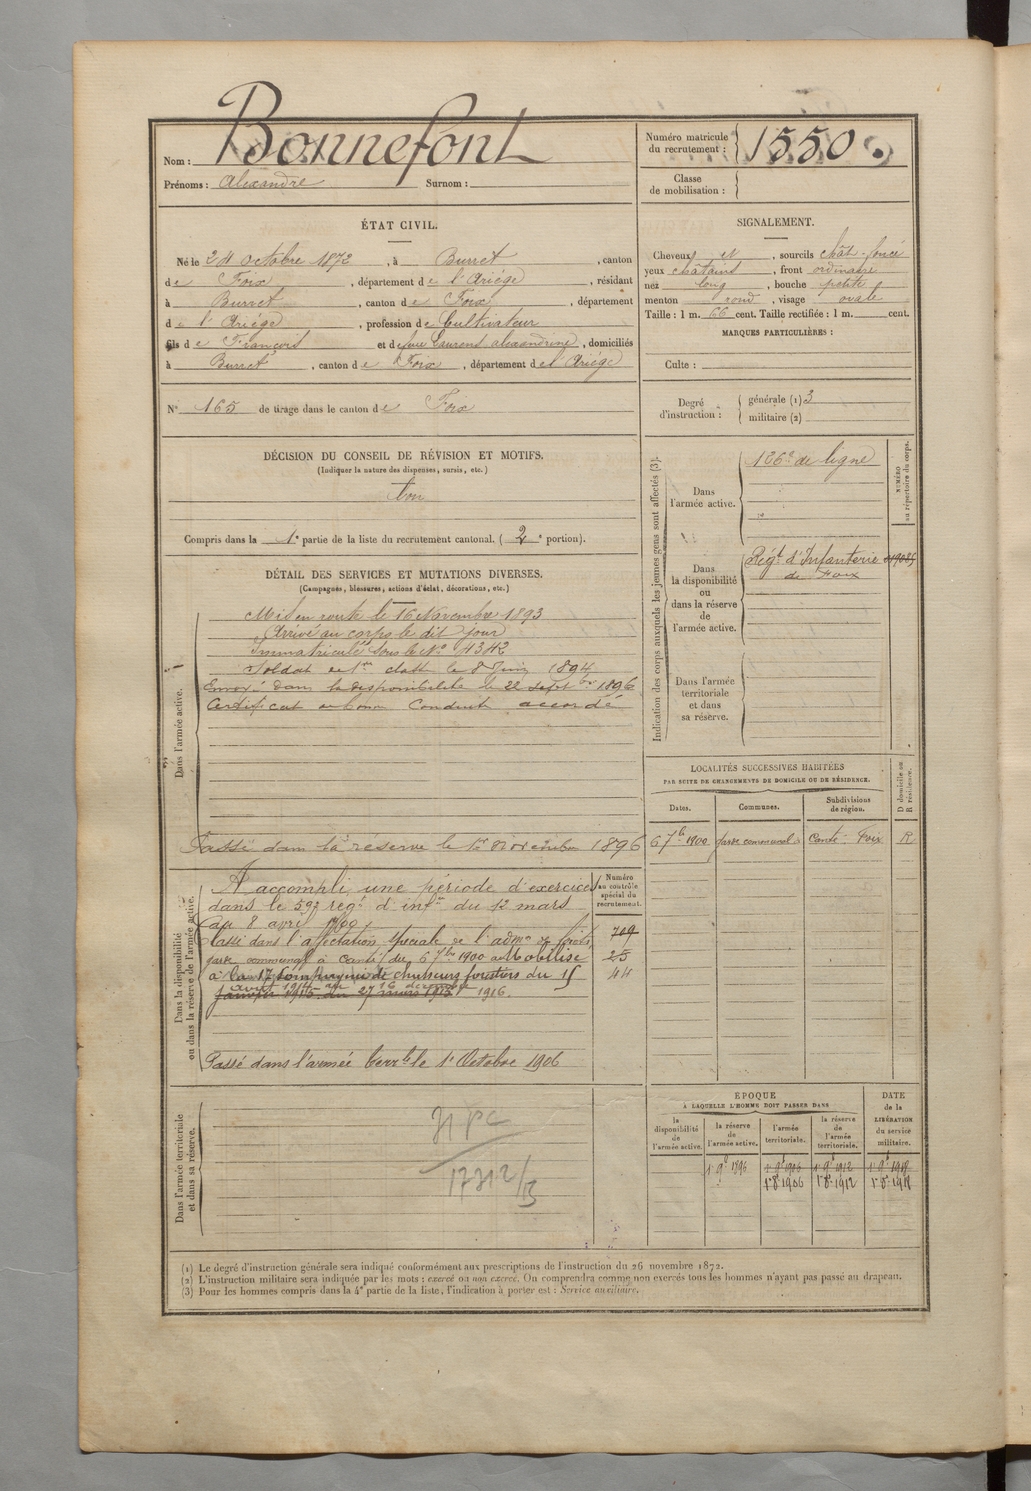 Nom : Bonnefont
Prénoms : Alexandre Surnom :
Numéro matricule du recrutement : 1550
Classe de mobilisation :
ÉTAT CIVIL.
Né le 24 octobre 1872, à Burret, canton
de Foix, département de l'Ariège, résidant
à Burret, canton de Foix, département
de l'Ariège, profession de Cultivateur
fils de François et de feue Laurens Alexandrine, domiciliés
à Burret, canton de Foix, département de l'Ariége
N° 165 de tirage dans le canton de Foix
SIGNALEMENT.
Cheveux et, sourcils chât. foncé
yeux châtains, front ordinaire
nez long, bouche petite
menton rond, visage ovale
Taille : 1 m. 66 cent. Taille rectifiée : 1 m. cent.
MARQUES PARTICULIÈRES :
Culte :
Degré d'instruction : générale (1) 3
militaire (2)
DÉCISION DU CONSEIL DE RÉVISION ET MOTIFS.
(Indiquer la nature des dispenses, sursis, etc.)
bon
Compris dans la 1e partie de la liste du recrutement cantonal. (2e portion).
DÉTAIL DES SERVICES ET MUTATIONS DIVERSES.
(Campagnes, blessures, actions d'éclat, décorations, etc.)
Dans l'armée active.
Mis en route le 16 Novembre 1893
Arrivé au corps le dit jour
Immatriculé sous le N° 4342
Soldat de 1re classe le 8 Juin 1894
Envoyé dans la disponibilité le 22 septbre 1896
Certificat de bonne Conduite accordé
Passé dans la réserve le 1er Novembre 1896
Dans la disponibilité ou dans la réserve de l'armée active.
A accompli une période d'exercices
dans le 59e régt d'infie du 12 mars
au 8 avril 1900
Passé dans l'affectation spéciale de l'admon des forêts
garde communal à Canté du 6 7bre 1900 Mobilisé
à la 17e Compagnie de chasseurs forestiers du 15
avril 1914 au 16 décembre
janvier 1915 au 27 mars 1915 1916.
Passé dans l'armée terrle le 1er Octobre 1906
Numéro au contrôle spécial du recrutement.
709
25
44
Dans l'armée territoriale et dans sa réserve.
17312/13
Indication des corps auxquels les jeunes gens sont affectés (3).
NUMÉRO au répertoire du corps.
Dans l'armée active.
126e de ligne
Dans la disponibilité ou dans la réserve de l'armée active.
Régt d'Infanterie
de Foix
Dans l'armée territoriale et dans sa réserve.
LOCALITÉS SUCCESSIVES HABITÉES
PAR SUITE DE CHANGEMENTS DE DOMICILE OU DE RÉSIDENCE.
Dates. Communes. Subdivisions de région. D domicile ou R résidence.
6 7b 1900 garde communal à Canté Foix R
ÉPOQUE
À LAQUELLE L'HOMME DOIT PASSER DANS
la disponibilité de l'armée active.
la réserve de l'armée active.
l'armée territoriale.
la réserve de l'armée territoriale.
DATE de la LIBÉRATION du service militaire.
1er 9bre 1896 1er 9bre 1906 1er 9bre 1912 1er 9bre 1918
1er 8bre 1906 1er 8bre 1912 1er 8bre 1918
(1) Le degré d'instruction générale sera indiqué conformément aux prescriptions de l'instruction du 26 novembre 1872.
(2) L'instruction militaire sera indiquée par les mots : exercé ou non exercé. On comprendra comme non exercés tous les hommes n'ayant pas passé au drapeau.
(3) Pour les hommes compris dans la 4e partie de la liste, l'indication à porter est : Service auxiliaire.